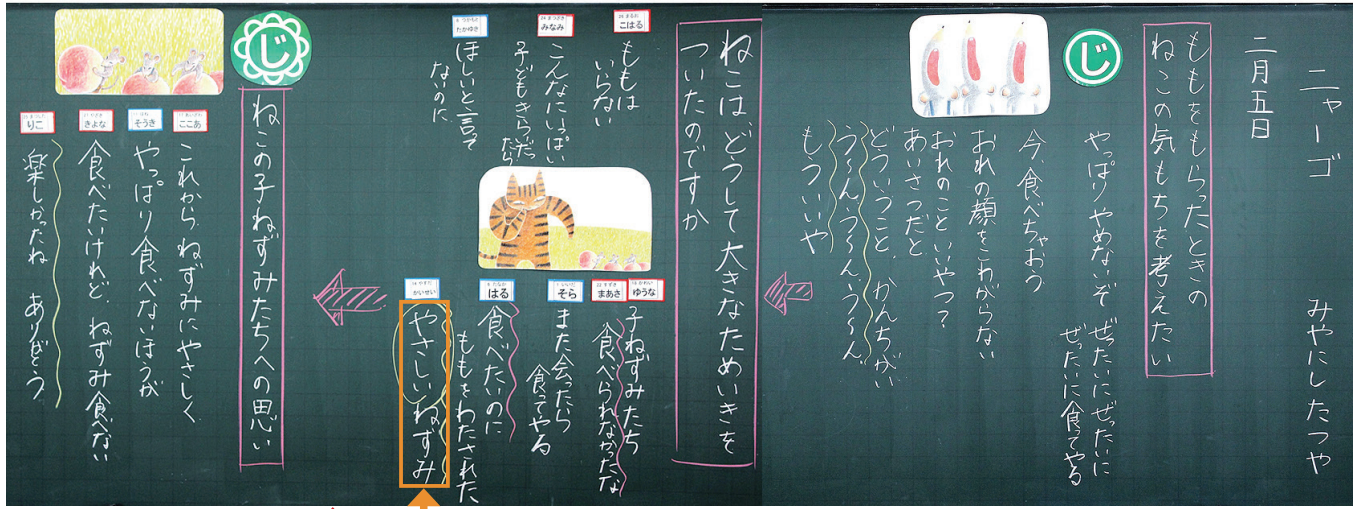 ニャーゴ
みやにしたつや
二月五日
ももをもらったときの
ねこの気もちを考えたい
じ
やっぱりやめないぞ
ぜったいにぜったいに
ぜったいに食ってやる
今、食べちゃおう
おれの顔をこわがらない
おれのこといいやつ?
あいさつだと
どういうこと、かんちがい
う〜ん、う〜ん、う〜ん
もういいや
ねこはどうして大きなためいきを
ついたのですか
こはる
ももは
いらない
みなみ
こんなにいっぱい
子どもきらいだったら
たかゆき
ほしいと言って
ないのに
ゆうな
子ねずみたち
まあさ
食べられなかったな
そら
また会ったら
食ってやる
はる
食べたいのに
ももをわたされた
かいせい
やさしいねずみ
じ
ねこの子ねずみたちへの思い
ここあ
これからねずみにやさしく
そうき
やっぱり食べないほうが
きよな
食べたいけれど、ねずみ食べない
りこ
楽しかったね ありがとう